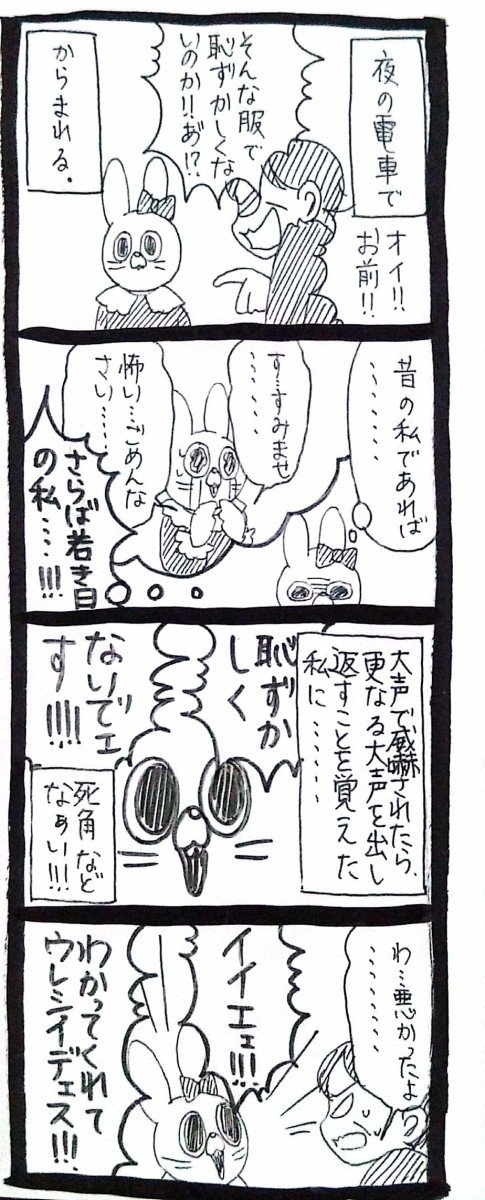 夜の電車で
オイ!!
お前!!
そんな服で
恥ずかしくな
いのか!!あ゛!?
からまれる。
昔の私であれば
............
す…すみませ
.........
怖い…ごめんな
さい......
さらば若き日
の私....!!!
大声で威嚇されたら、
更なる大声を出し
返すことを覚えた
私に.........
恥ずか
しく
ないでェ
す!!!!
死角など
なぁい!!!
わ…悪かったよ
.........
イイエ!!!
わかってくれて
ウレシイデェス!!!